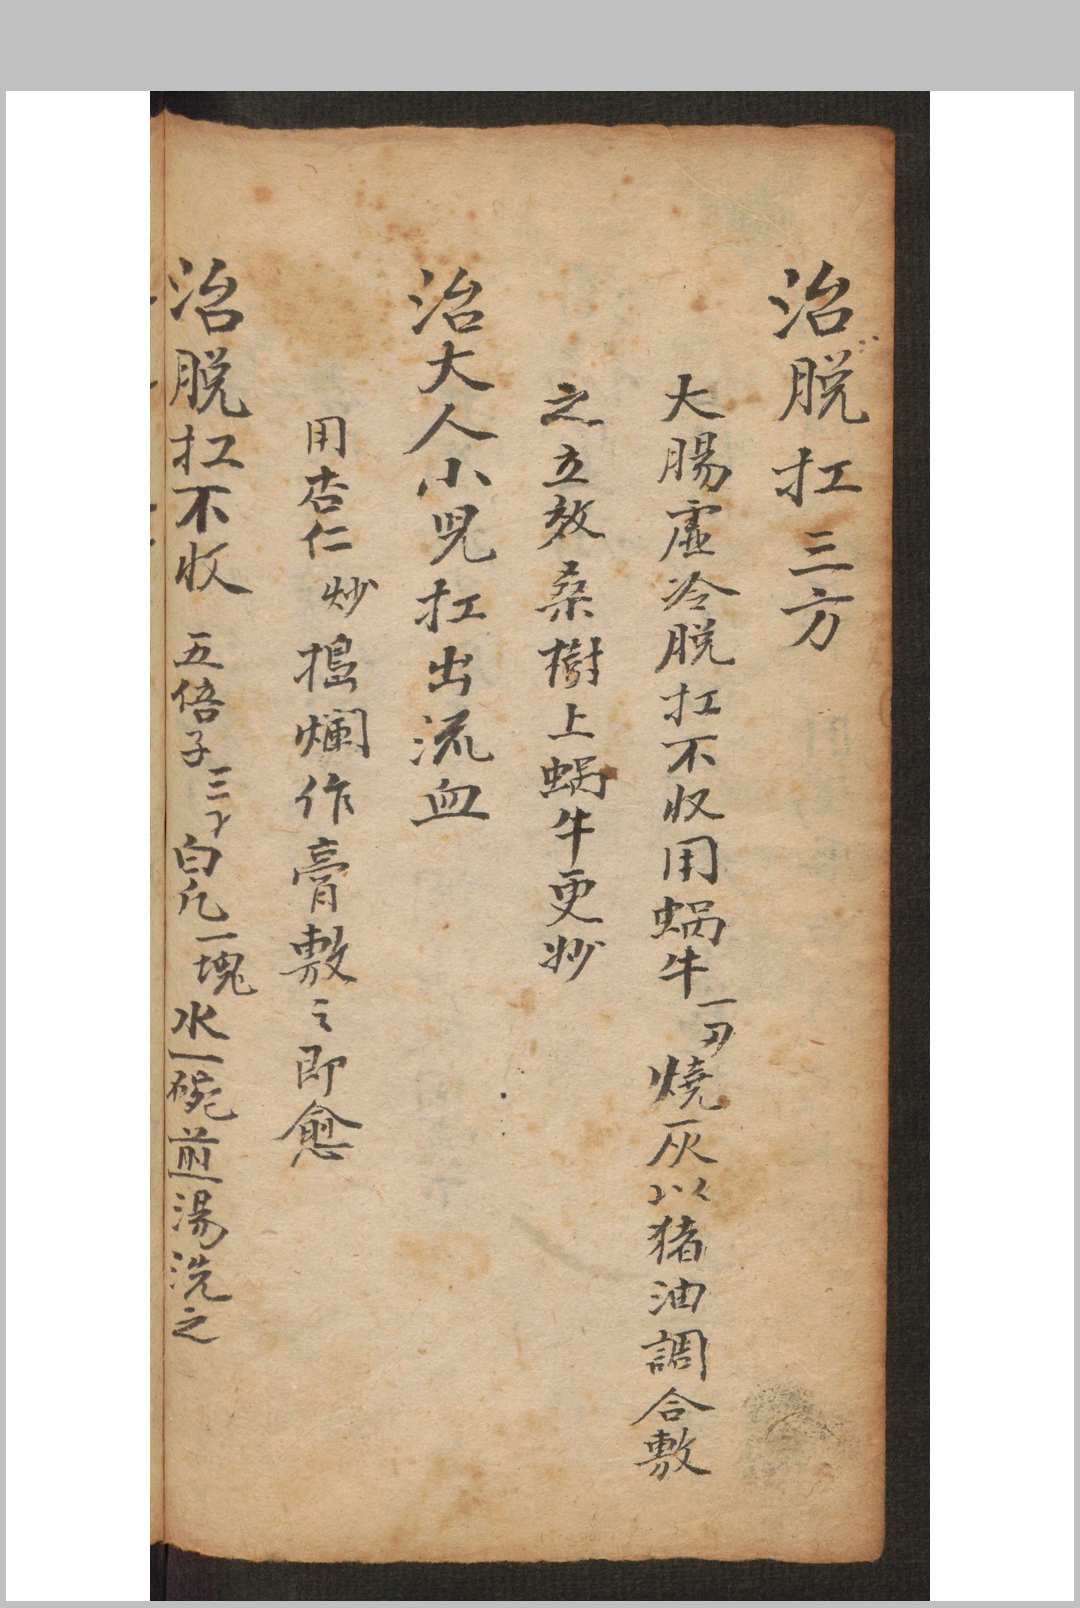 治脫扛三方
大腸虛冷脫扛不收用蝸牛一刃燒灰以猪油調合敷
之立效桑樹上蝸牛更妙
治大人小児扛出流血
用杏仁炒搗爛作膏敷之即愈
治脫扛不收 五倍子三 白凡一塊水一碗煎湯洗之